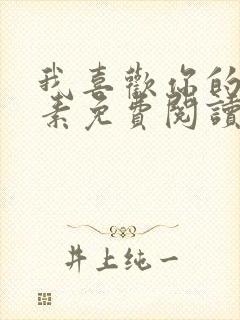 我喜歡你的
素免費閱讀
井上纯一